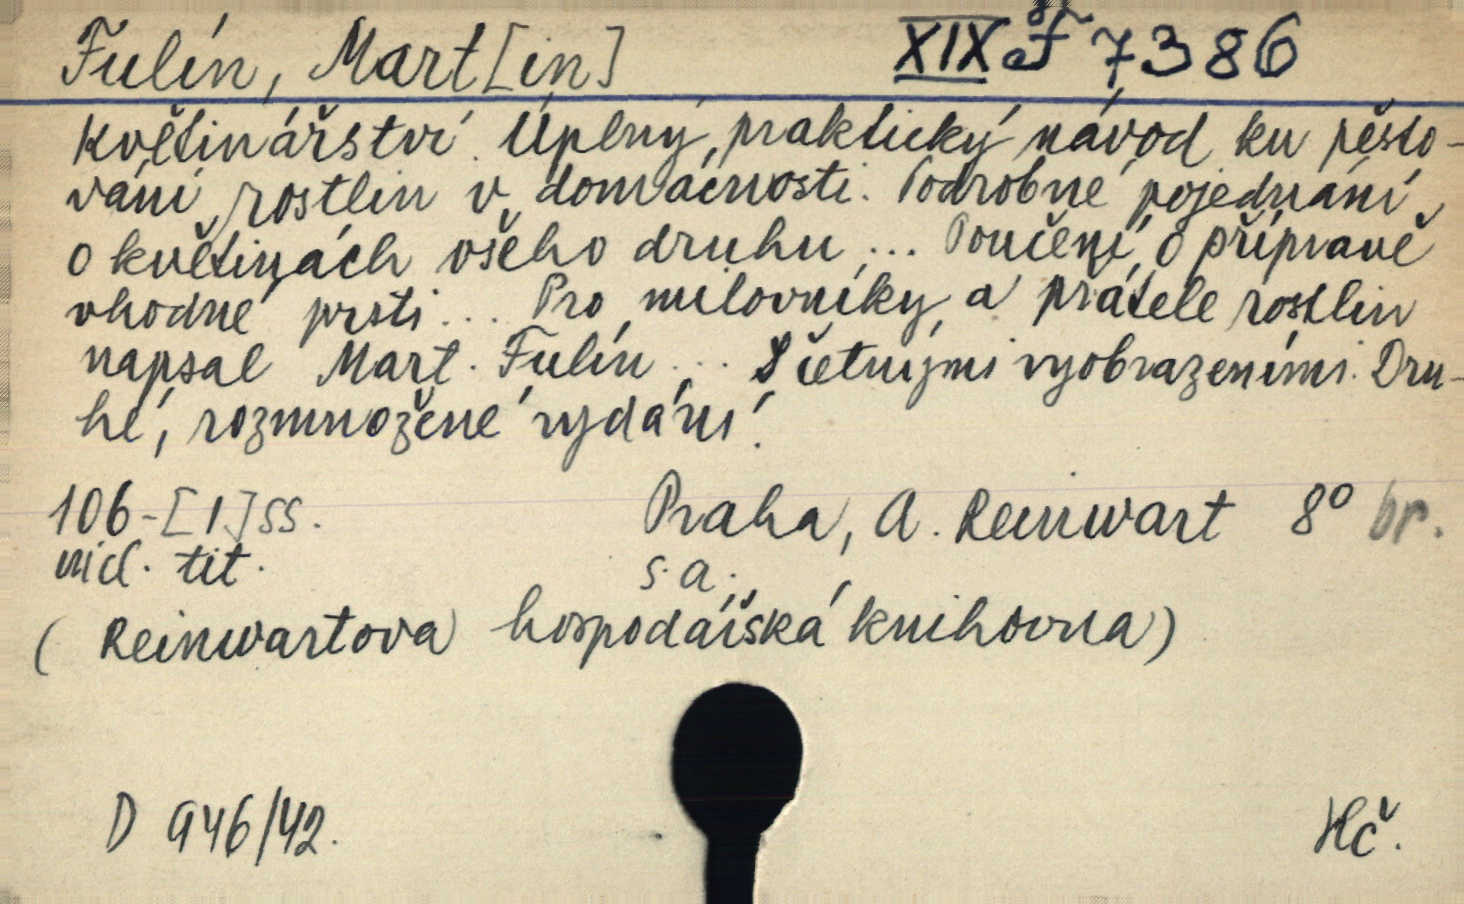 Fulín, Mart[in] XIX F 7386
Květinářství. Úplný, praktický návod ku pěsto-
vání rostlin v domácnosti. Podrobné pojednání
o květinách všeho druhu ... Poučení o přípravě
vhodné prsti ... Pro milovníky a přátele rostlin
napsal Mart. Fulín ... S četnými vyobrazeními. Dru-
hé, rozmnožené vydání.
106-[1] ss. Praha, A. Reinwart 8° br.
incl. tit. s.a.
(Reinwartova hospodářská knihovna)
D 946/42. Hč.